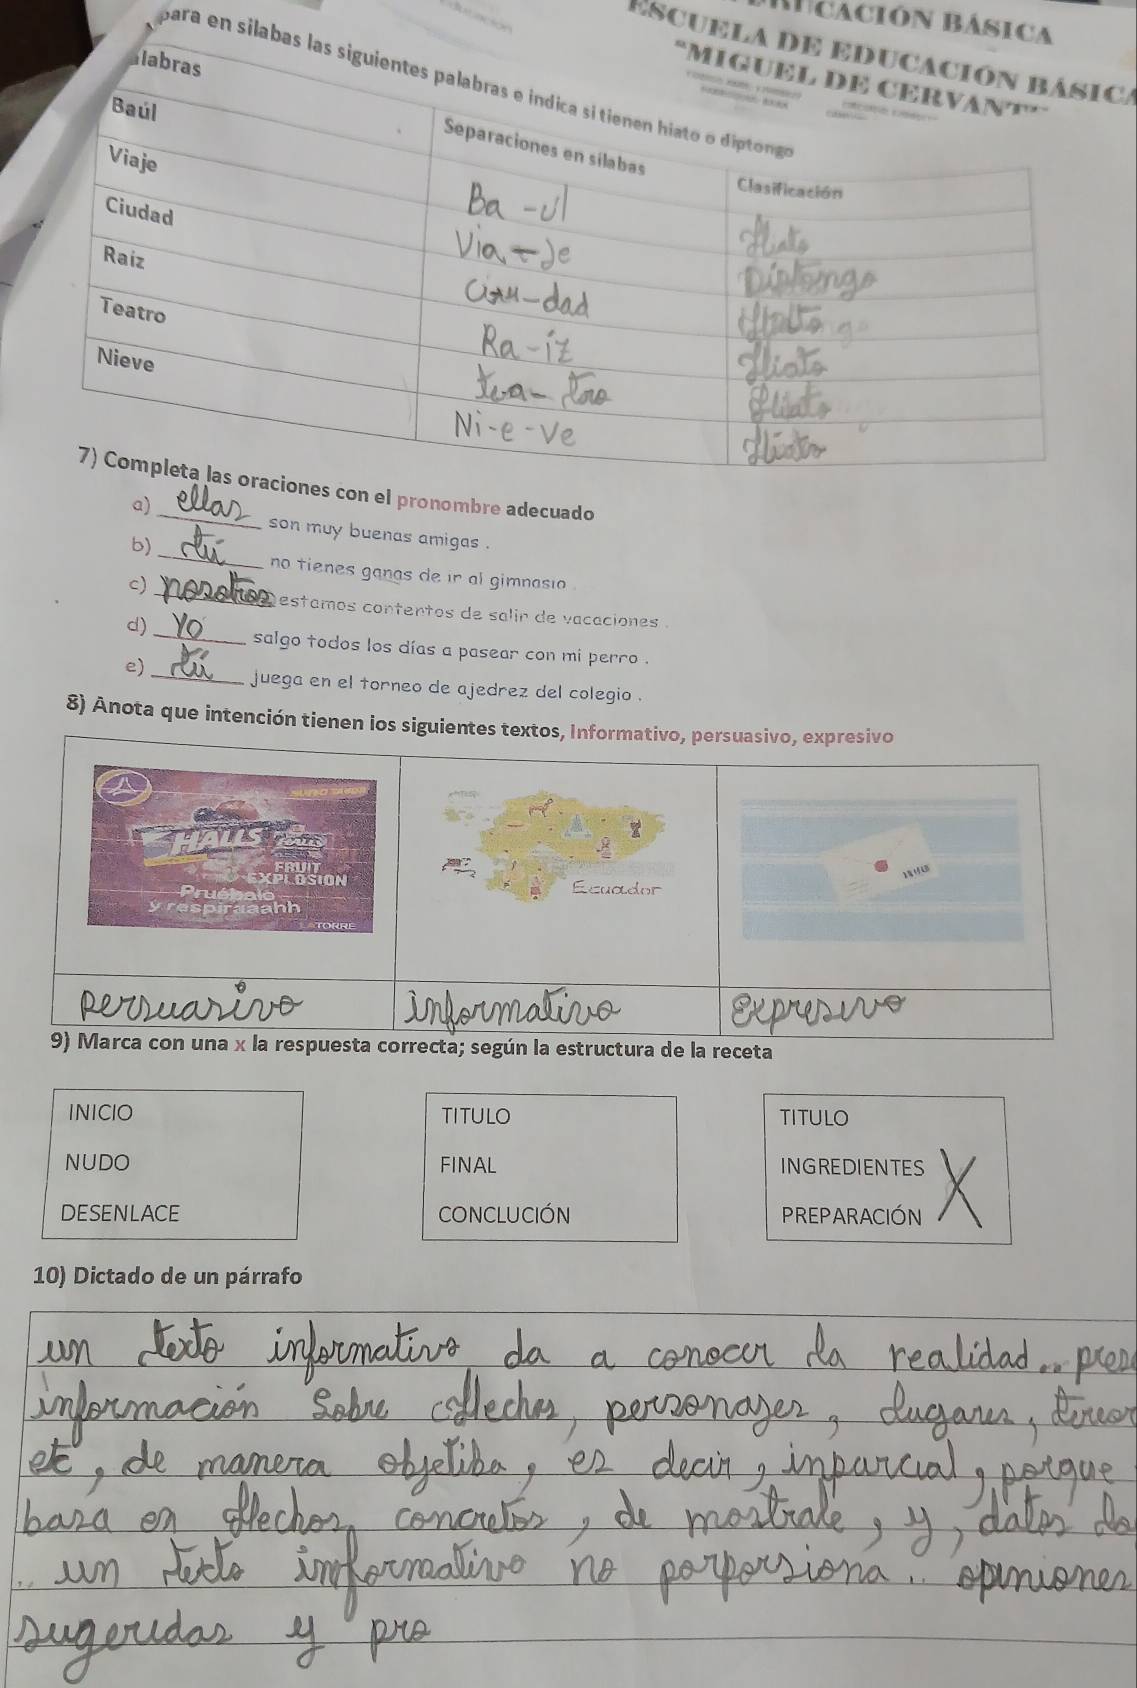 ESCUELA DE EDUCACIÓN BÁSICA
"MIGUEL DE CERVANT
para en silabas las siguientes palabras e indica si tienen hiato o diptongo
alabras Separaciones en sílabas Clasificación
Baúl Ba-úl Hiato
Viaje Via-je Diptongo
Ciudad Ciu-dad
Raíz Ra-íz Hiato
Teatro tea-tro Hiato
Nieve Ni-e-ve Hiato
7) Completa las oraciones con el pronombre adecuado
a) ellas son muy buenas amigas .
b) tú no tienes ganas de ir al gimnasio .
c) nosotros estamos contentos de salir de vacaciones .
d) Yo salgo todos los días a pasear con mi perro .
e) tú juega en el torneo de ajedrez del colegio .
8) Anota que intención tienen los siguientes textos, Informativo, persuasivo, expresivo
NUEVO SABOR
HALLS
FRUIT
EXPLOSION
Pruébalo
y respiraaahh
LATORRE
Ecuador
persuasivo informativo expresivo
9) Marca con una x la respuesta correcta; según la estructura de la receta
INICIO TITULO TITULO
NUDO FINAL INGREDIENTES X
DESENLACE CONCLUCIÓN PREPARACIÓN
10) Dictado de un párrafo
un texto informativo da a conocer la realidad.. pres
información sobre effechos, personajes, lugares,
etc, de manera objetiba, es decir, inparcial, porque
basa en effechos concretos, de mostrale, y, datos do
.. un texto informativo no porporsiona.. opiniones
sugeridas y pro